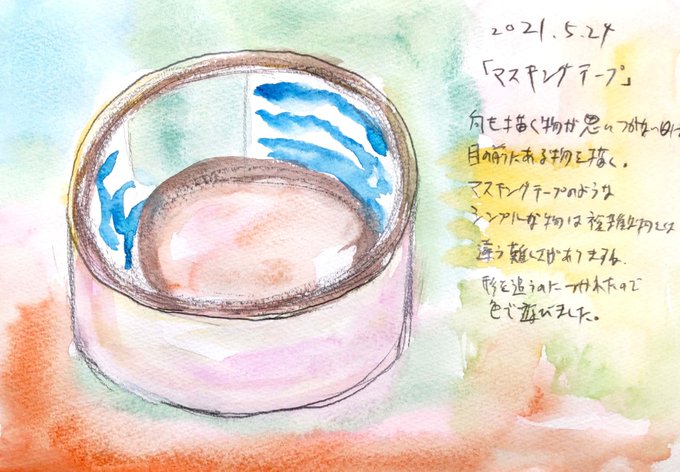 2021.5.24
「マスキングテープ」
何も描く物が思いつかない日は
目の前にある物を描く。
マスキングテープのような
シンプルな物は複雑な物とは
違う難しさがありますね。
形を追うのにつかれたので
色で遊びました。